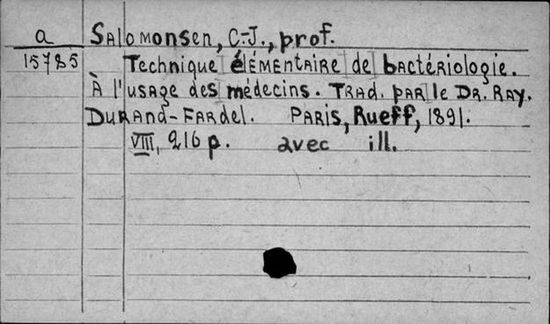 a Salomonsen, C.-J., prof.
15785 Technique élémentaire de bactériologie.
À l'usage des médecins. Trad. par le Dr. Ray.
Durand-Fardel. Paris, Rueff, 1891.
VIII, 216 p. avec ill.